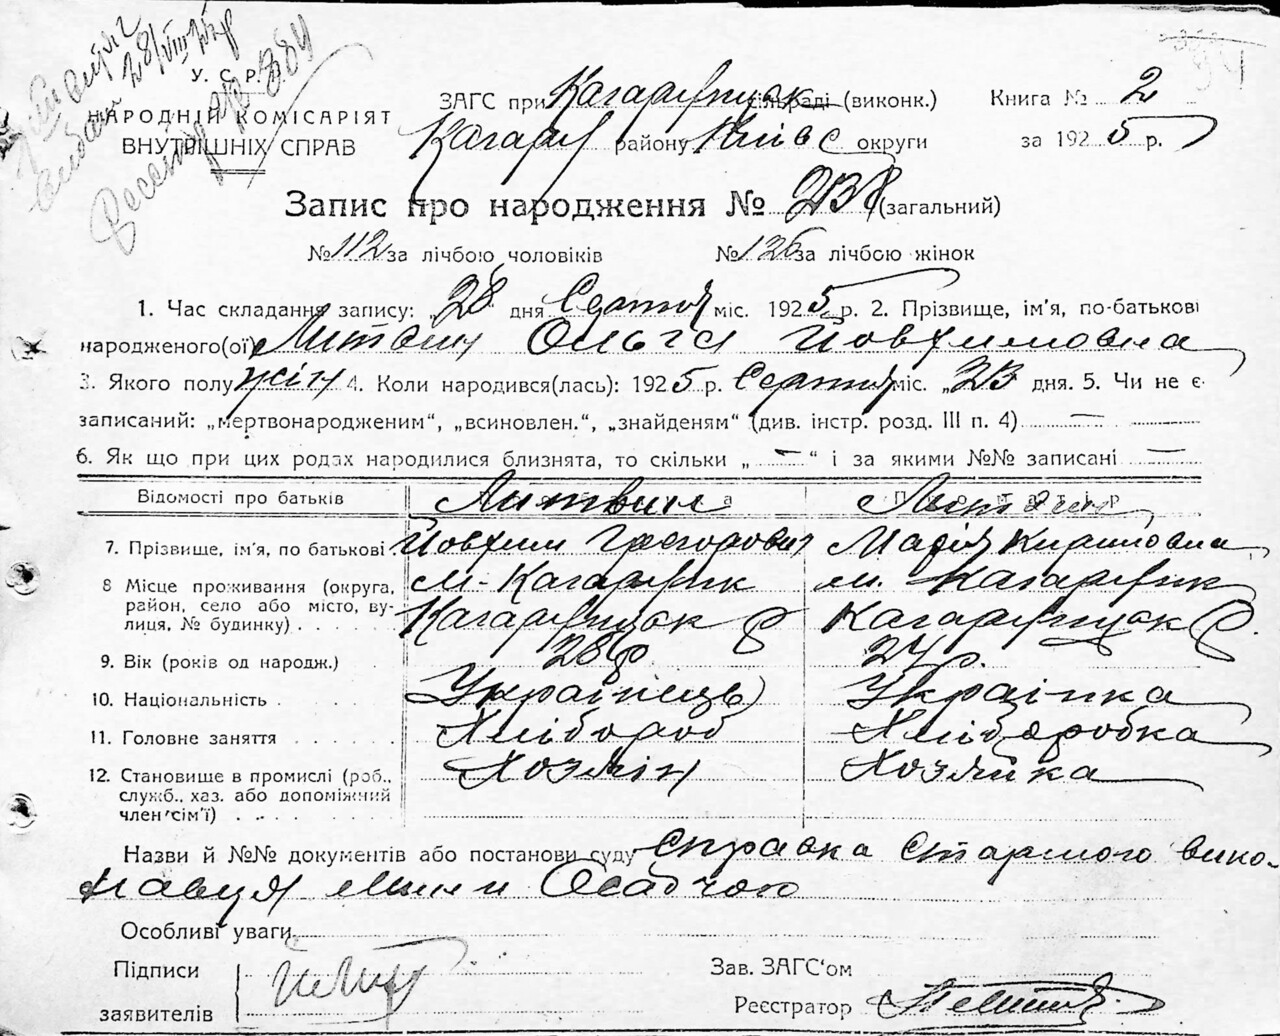 У. С. Р. Р.
НАРОДНІЙ КОМІСАРІЯТ
ВНУТРІШНІХ СПРАВ
28/VIII 25 р
№ 384
ЗАГС при Кагарлицьк сільраді (виконк.) Книга № 2
Кагарл району Київс округи за 1925 р.
Запис про народження № 238 (загальний)
№ 112 за лічбою чоловіків № 126 за лічбою жінок
1. Час складання запису: „28“ дня Серпня міс. 1925 р. 2. Прізвище, ім'я, по-батькові
народженого(ої) Литвин Ольга Йовхимовна
3. Якого полу жін 4. Коли народився(лась): 1925 р. Серпня міс. „23 дня. 5. Чи не є
записаний: „мертвонародженим“, „всиновлен.“, „знайденям“ (див. інстр. розд. III п. 4) —
6. Як що при цих родах народилися близнята, то скільки „ — “ і за якими №№ записані —
Відомості про батьків Литвин Литвин
7. Прізвище, ім'я, по батькові Йовхим Григорович Марія Кириловна
8 Місце проживання (округа, м. Кагарлик м. Кагарлик
район, село або місто, ву-
лиця, № будинку) Кагарлицьк р Кагарлицьк р.
9. Вік (років од народж.) 28 р. 24 р.
10. Національність Українець Українка
11. Головне заняття Хлібороб Хліборобка
12. Становище в промислі (роб., Хозяін Хозяйка
служб., хаз. або допоміжний
член сім'ї)
Назви й №№ документів або постанови суду Справка Старшого вико-
навця Осадчою
Особливі уваги
Підписи
заявителів
Зав. ЗАГС'ом
Реєстратор